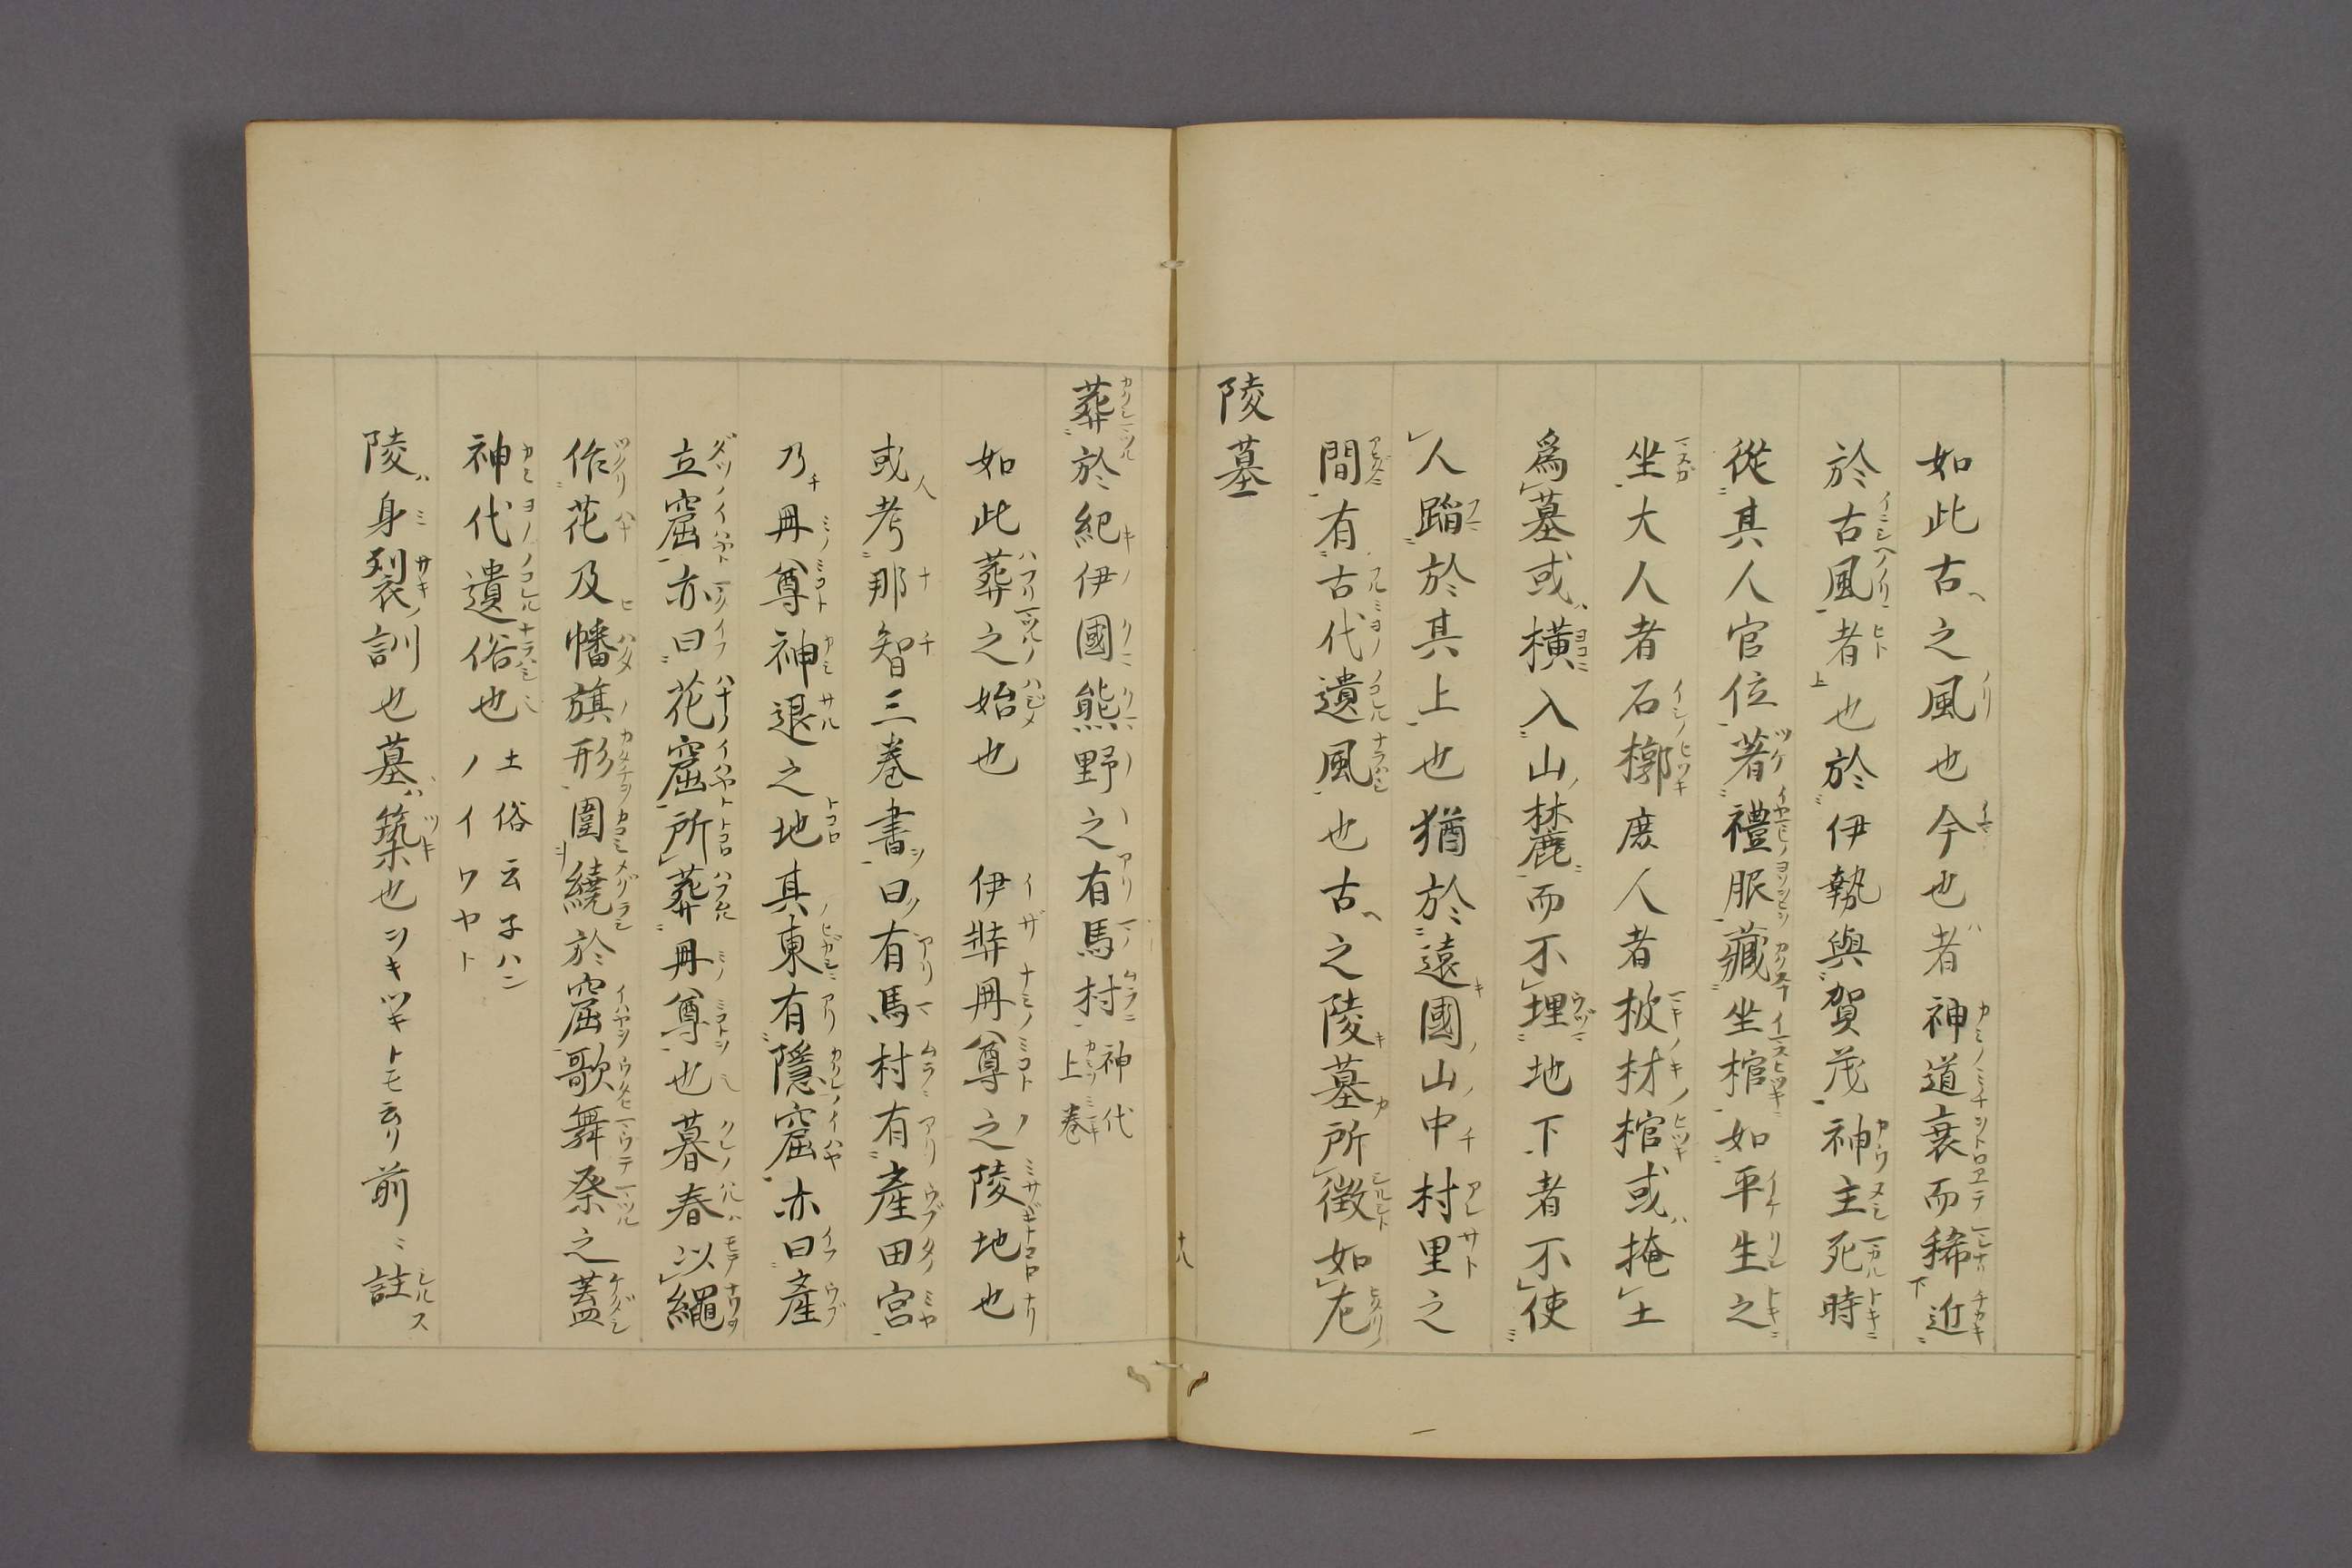 如此古之風也今也者神道衰而稀近
於古風者也於伊勢與賀茂神主死時
從其人官位著禮服藏坐棺如平生之
坐大人者石槨庶人者披材棺或掩土
爲墓或横入山麓而不埋地下者不使
人蹈於其上也猶於遠國山中村里之
間有古代遺風也古之陵墓所徴如左
陵墓
十八
葬於紀伊國熊野之有馬村神代上巻
如此葬之始也 伊弉冊尊之陵地也
或考那智三巻書曰有馬村有産田宮
乃冊尊神退之地其東有隠窟亦曰産
立窟亦曰花窟所葬冊尊也暮春以縄
作花及幡旗形圍繞於窟歌舞祭之蓋
神代遺俗也土俗云子ハンノイワヤト
陵ハ身裂ノ訓也墓ハ築也ツキツキトモ云リ前ニ註